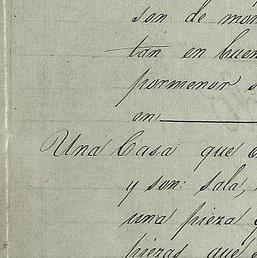 son de
tan en
pormenor
on
Una Casa que
y son: sala,
una pieza y
piezas que